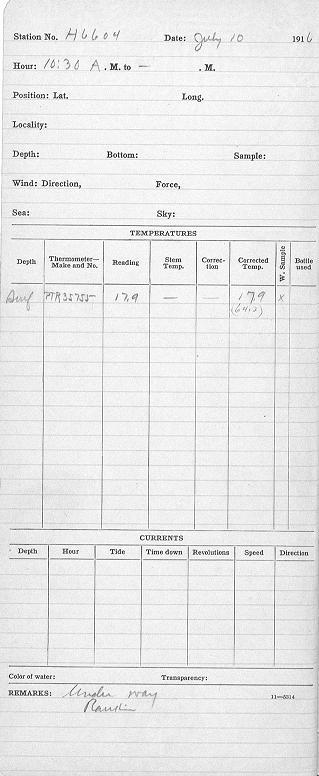 Station No. H6604 Date: July 10 1916
Hour: 10:30 A. M. to — . M.
Position: Lat. Long.
Locality:
Depth: Bottom: Sample:
Wind: Direction, Force,
Sea: Sky:
TEMPERATURES
Depth Thermometer—Make and No. Reading Stem Temp. Correc-tion Corrected Temp. W. Sample Bottle used
Surf 35755 17.9 — — 17.9 x
(64.2)
CURRENTS
Depth Hour Tide Time down Revolutions Speed Direction
Color of water: Transparency:
REMARKS: Under way 11—5314
Rankin